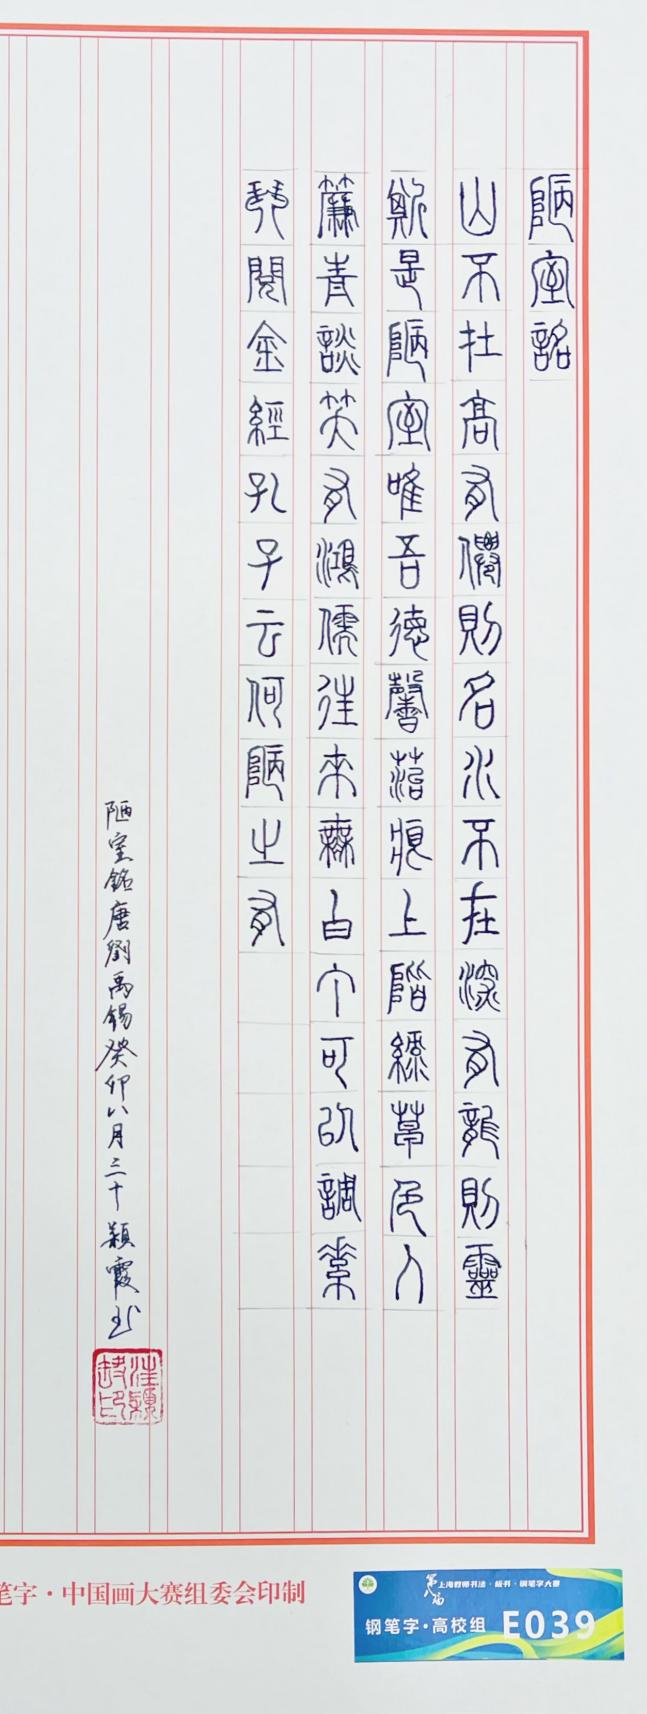 陋室詺
山不在高有僊則名水不在深有龍則靈
斯是陋室唯吾德馨苔痕上階綠草色入
簾青談笑有鴻儒往來無白丁可以調素
琴閱金經孔子云何陋之有
陋室銘唐劉禹錫癸卯八月三十穎霞书
笔字·中国画大赛组委会印制
第八届上海教师书法·板书·钢笔字大赛
钢笔字·高校组 E039